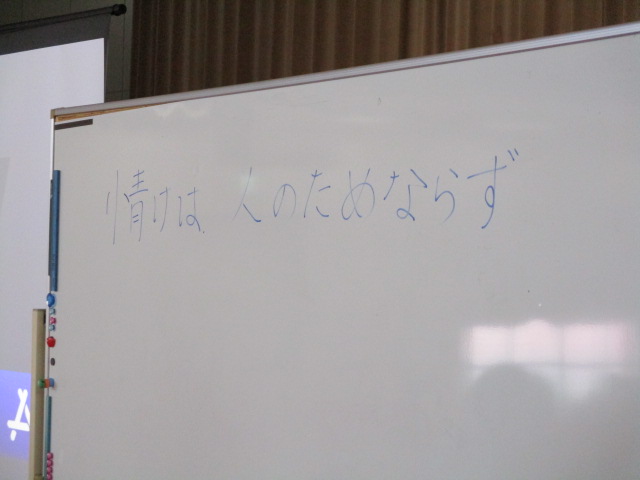 情けは 人のためならず